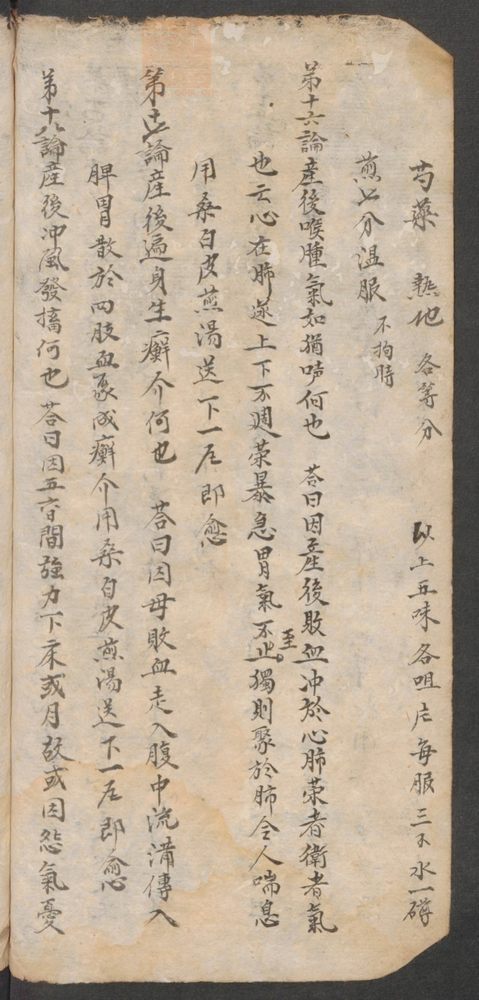 芍藥 熟地 各等分 以上五味各咀片每服三不水一礶
煎七分温服 不拘時
第十六論産後喉腫氣如猶吽何也 荅曰因産後敗血冲於心肺荣者衛者氣
也云心在肺遂上下不週荣暴急胃氣不至止獨則聚於肺令人喘息
用桑白皮煎湯送下一石即愈
第十七論産後遍身生癬介何也 荅曰因母敗血走入腹中流满傳入
脾胃散於四肢血豕成癬介用桑白皮煎湯送下一石即愈
第十八論産後冲風發搐何也 荅曰因五七日間強力下床或月故或因怨氣憂